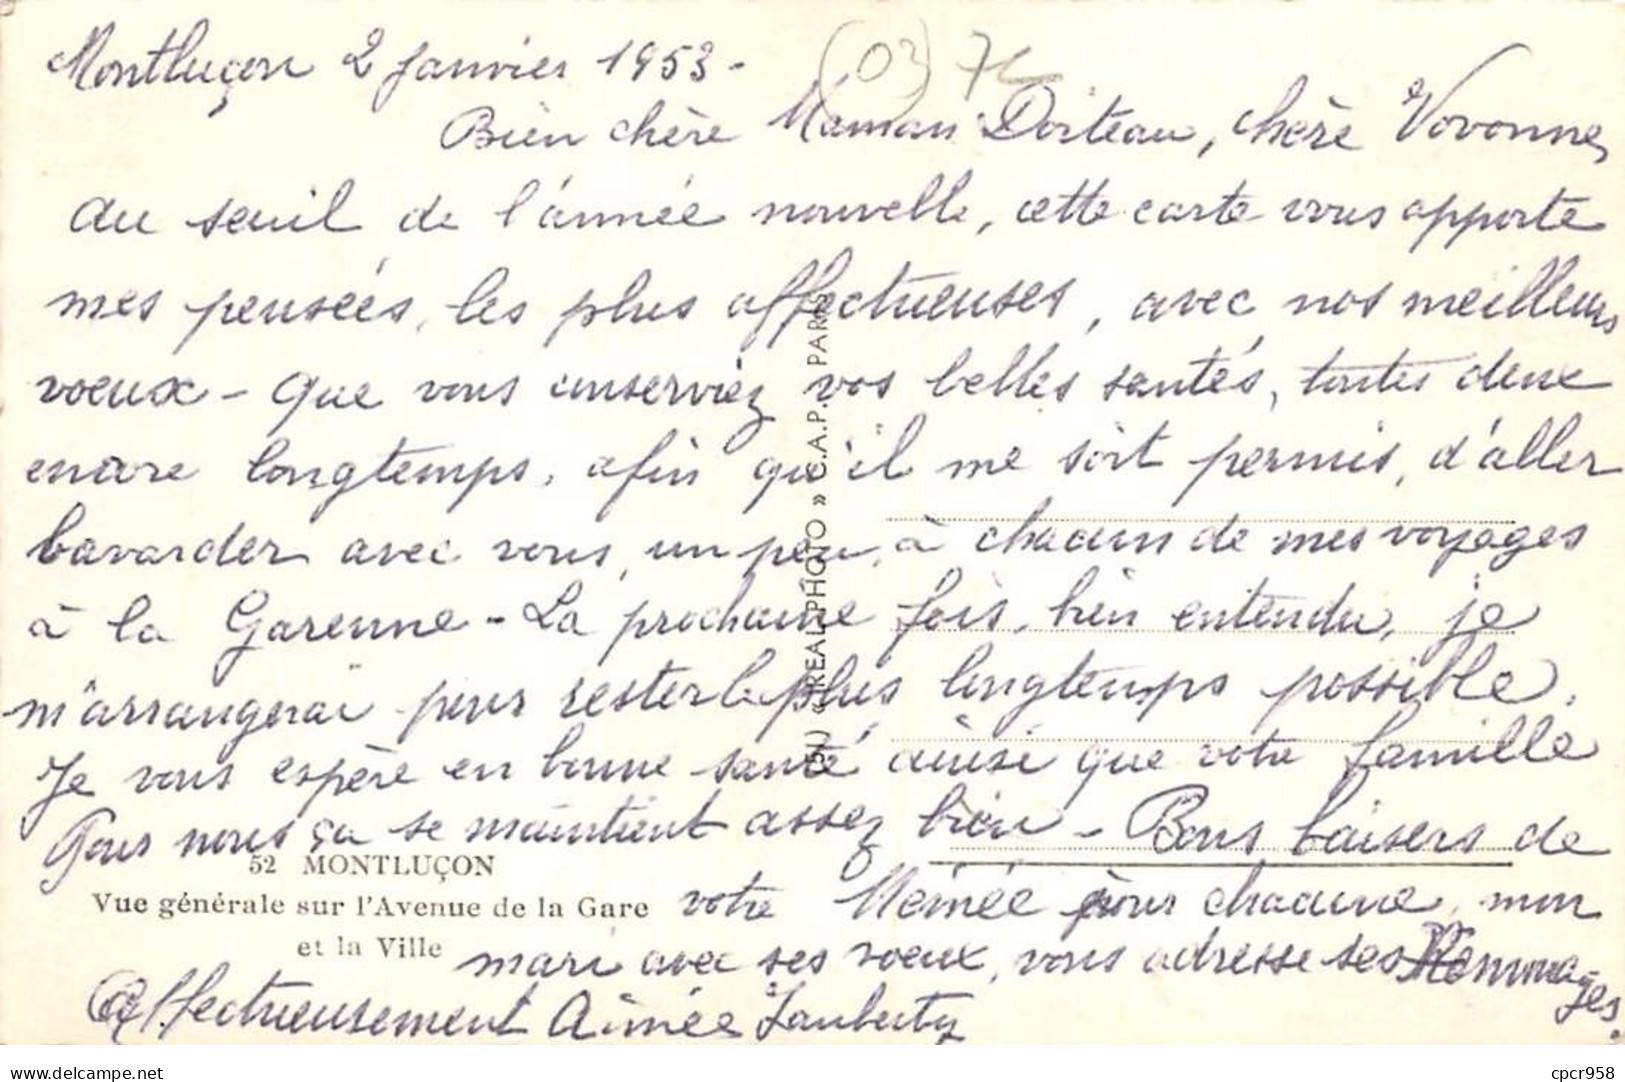 Montluçon 2 Janvier 1953 -
(03) 7L
Bien chère Maman Doiteau, chère Vovonne,
Au seuil de l'année nouvelle, cette carte vous apporte
mes pensées, les plus affectueuses, avec nos meilleurs
voeux - Que vous conserviez vos belles santés, toutes deux
encore longtemps, afin qu'il me soit permis, d'aller
bavarder avec vous, un peu, à chacun de mes voyages
à la Garenne - La prochaine fois, bien entendu, je
m'arrangerai pour rester le plus longtemps possible.
Je vous espère en bonne santé ainsi que votre famille
Pour nous ça se maintient assez bien - Bons baisers de
votre Mémée pour chacune, mon
mari avec ses voeux, vous adresse ses Hommages.
Affectueusement Aimée
52 MONTLUÇON
Vue générale sur l'Avenue de la Gare
et la Ville
« REAL-PHOTO » C.A.P. PARIS
cpcr958